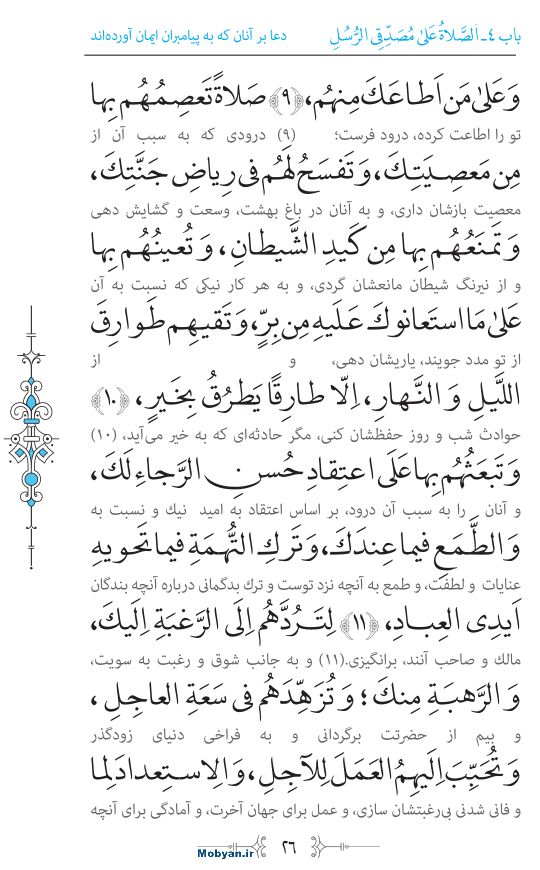 باب ٤ـ اَلصَّلاةُ عَلىٰ مُصَدِّقِی الرُّسُلِ دعا بر آنان که به پیامبران ایمان آورده‌اند
وَ عَلیٰ مَن اَطاعَكَ مِنهُم، ﴿٩﴾ صَلاةً تَعصِمُهُم بِها
تو را اطاعت کرده، درود فرست؛ (۹) درودی که به سبب آن از
مِن مَعصِیَتِكَ، وَ تَفسَحُ لَهُم فی رِیاضِ جَنَّتِكَ،
معصیت بازشان داری، و به آنان در باغ بهشت، وسعت و گشایش دهی
وَ تَمنَعُهُم بِها مِن کَیدِ الشَّیطانِ، وَ تُعینُهُم بِها
و از نیرنگ شیطان مانعشان گردی، و به هر کار نیکی که نسبت به آن
عَلیٰ مَا استَعانوكَ عَلَیهِ مِن بِرٍّ، وَ تَقیهِم طَوارِقَ
از تو مدد جویند، یاریشان دهی، و از
اللَّیلِ وَ النَّهارِ، اِلّا طارِقًا یَطرُقُ بِخَیرٍ، ﴿١٠﴾
حوادث شب و روز حفظشان کنی، مگر حادثه‌ای که به خیر می‌آید، (۱۰)
وَ تَبعَثُهُم بِها عَلَی اعتِقادِ حُسنِ الرَّجاءِ لَكَ،
و آنان را به سبب آن درود، بر اساس اعتقاد به امید نیك و نسبت به
وَ الطَّمَعِ فیما عِندَكَ، وَ تَركِ التُّهَمَةِ فیما تَحویهِ
عنایات و لطفت، و طمع به آنچه نزد توست و ترك بدگمانی درباره آنچه بندگان
اَیدِی العِبادِ، ﴿١١﴾ لِتَرُدَّهُم اِلَی الرَّغبَةِ اِلَیكَ،
مالك و صاحب آنند، برانگیزی.(۱۱) و به جانب شوق و رغبت به سویت،
وَ الرَّهبَةِ مِنكَ؛ وَ تُزَهِّدَهُم فی سَعَةِ العاجِلِ،
و بیم از حضرتت برگردانی و به فراخی دنیای زودگذر
وَ تُحَبِّبَ اِلَیهِمُ العَمَلَ لِلآجِلِ، وَ الاِستِعدادَ لِما
و فانی شدنی بی‌رغبتشان سازی، و عمل برای جهان آخرت، و آمادگی برای آنچه
٢٦
Mobyan.ir